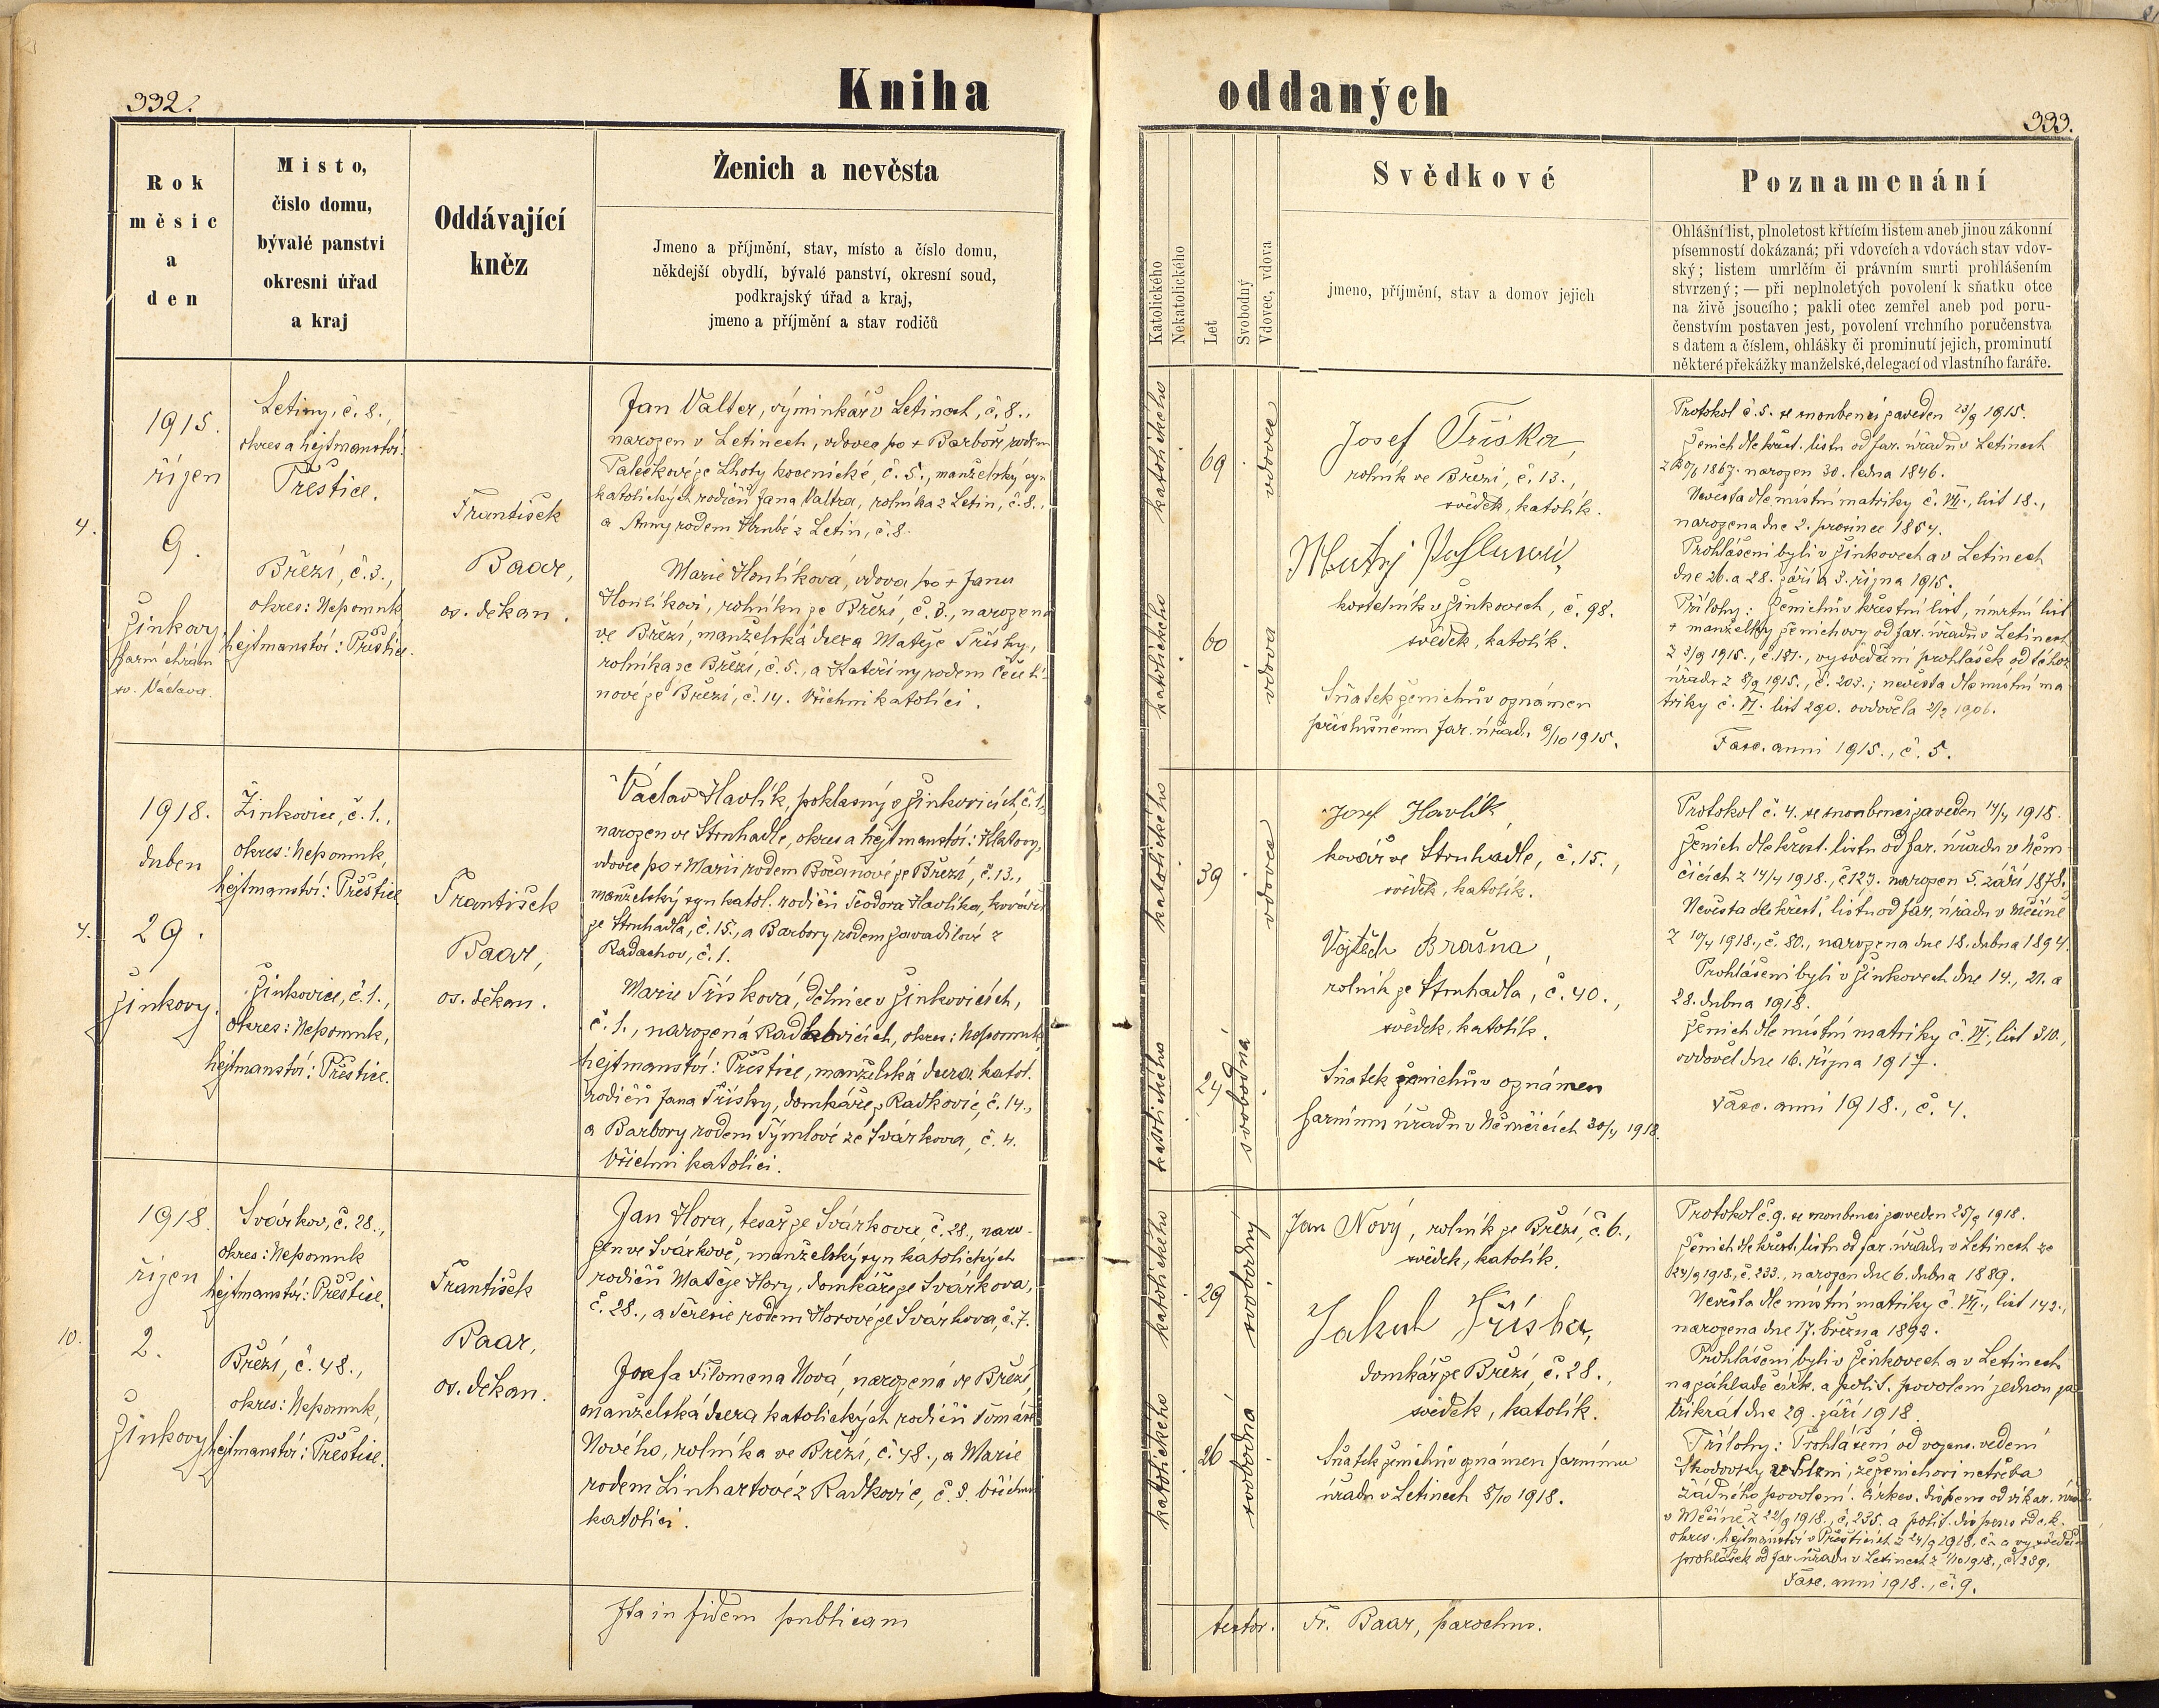 332.
Kniha
oddaných
333.
Rok
měsíc
a
den
Místo,
číslo domu,
bývalé panství
okresní úřad
a kraj
Oddávající
kněz
Ženich a nevěsta
Jmeno a příjmění, stav, místo a číslo domu,
někdejší obydlí, bývalé panství, okresní soud,
podkrajský úřad a kraj,
jmeno a příjmění a stav rodičů
Katolického
Nekatolického
Let
Svobodný
Vdovec, vdova
Svědkové
jmeno, příjmění, stav a domov jejich
Poznamenání
Ohlášní list, plnoletost křtícím listem aneb jinou zákonní
písemností dokázaná; při vdovcích a vdovách stav vdov-
ský; listem umrlčím či právním smrti prohlášením
stvrzený; — při neplnoletých povolení k sňatku otce
na živě jsoucího; pakli otec zemřel aneb pod poru-
čenstvím postaven jest, povolení vrchního poručenstva
s datem a číslem, ohlášky či prominutí jejich, prominutí
některé překážky manželské, delegací od vlastního faráře.
4.
1915.
říjen
9.
Žinkovy,
farní chrám
sv. Václava.
Letiny, č. 8.,
okres a hejtmanství:
Přeštice.
Březí, č. 3.,
okres: Nepomuk,
hejtmanství: Přeštice.
František
Baar,
os. děkan.
Jan Valter, výminkář v Letinech, č. 8.,
narozen v Letinech, vdovec po + Barboře rodem
Palečkové ze Lhoty kocenické, č. 5., manželský syn
katolických rodičů Jana Valtra, rolníka z Letin, č. 8.,
a Anny rodem Hrubé z Letin, č. 8.
Marie Honlíková, vdova po + Janu
Honlíkovi, rolníku ze Březí, č. 3., narozena
ve Březí, manželská dcera Matěje Tříšky,
rolníka ze Březí, č. 5., a Kateřiny rodem
nové ze Březí, č. 14. Všichni katolíci.
katolického
69
vdovec
katolického
60
vdova
Josef Tříska,
rolník ve Březí, č. 13.,
svědek, katolík.
Matěj
kostelník v Žinkovech, č. 98.
svědek, katolík.
Sňatek ženichův oznámen
příslušnému far. úřadu 9/10 1915.
Protokol č. 5. se snoubenci zaveden 23/9 1915.
Ženich dle křest. listu od far. úřadu v Letinech
z 1867. narozen 30. ledna 1846.
Nevěsta dle místní matriky č. VII., list 18.,
narozena dne 2. prosince 1854.
Prohlášeni byli v Žinkovech a v Letinech
dne 26. a 28. září a 3. října 1915.
Přílohy: Ženichův křestní list, úmrtní list
+ manželky ženichovy od far. úřadu v Letinech
z 3/9 1915., č. 181., vysvědčení prohlášek od téhož
úřadu z 8/9 1915., č. 203.; nevěsta dle místní ma
triky č. VI. list 290. ovdověla 2/2 1906.
Fasc. anni 1915., č. 5.
4.
1918.
duben
29.
Žinkovy.
Žinkovice, č. 1.,
okres: Nepomuk,
hejtmanství: Přeštice
Žinkovice, č. 1.,
okres: Nepomuk,
hejtmanství: Přeštice.
František
Baar,
os. děkan.
Václav Havlík, poklasný v Žinkovicích, č. 1.,
narozen ve Struhadle, okres a hejtmanství: Klatovy,
vdovec po + Marii rodem Bočanové ze Březí, č. 13.,
manželský syn katol. rodičů Teodora Havlíka, kováře
ze Struhadla, č. 15., a Barbory rodem Zavadilové z
Radachov, č. 1.
Marie Tříšková, dělnice v Žinkovicích,
č. 1., narozená Radkovicích, okres: Nepomuk,
hejtmanství: Přeštice, manželská dcera katol.
rodičů Jana Tříšky, domkáře z Radkovic, č. 14.,
a Barbory rodem Týmlové ze Svárkova, č. 4.
Všichni katolíci.
katolického
39
vdovec
katolického
24
svobodná
Josef Havlík,
kovář ve Struhadle, č. 15.,
svědek, katolík.
Vojtěch Brašna,
rolník ze Struhadla, č. 40.,
svědek, katolík.
Sňatek ženichův oznámen
farnímu úřadu v Němčicích 30/4 1918.
Protokol č. 4. se snoubenci zaveden 14/4 1918.
Ženich dle křest. listu od far. úřadu v Něm
čicích z 14/4 1918., č. 127. narozen 5. září 1878.
Nevěsta dle křest. listu od far. úřadu v Měčíně
z 10/4 1918., č. 80., narozena dne 18. dubna 1894.
Prohlášeni byli v Žinkovech dne 14., 21. a
28. dubna 1918.
Ženich dle místní matriky č. VI., list 310.,
ovdověl dne 16. října 1917.
Fasc. anni 1918., č. 4.
10.
1918.
říjen
2.
Žinkovy
Svárkov, č. 28.,
okres: Nepomuk
hejtmanství: Přeštice.
Březí, č. 48.,
okres: Nepomuk,
hejtmanství: Přeštice.
František
Baar,
os. děkan.
Jan Hora, tesař ze Svárkova č. 28., naro-
zen ve Svárkově, manželský syn katolických
rodičů Matěje Hory, domkáře ze Svárkova,
č. 28., a Terezie rodem Horové ze Svárkova, č. 7.
Josefa Filomena Nová, narozená ve Březí,
manželská dcera katolických rodičů Tomáše
Nového, rolníka ve Březí, č. 48., a Marie
rodem Linhartové z Radkovic, č. 3. Všichni
katolíci.
katolického
29
svobodný
katolického
26
svobodná
Jan Nový, rolník ze Březí, č. 6.,
svědek, katolík.
Jakub Tříska,
domkář ze Březí, č. 28.,
svědek, katolík.
Sňatek ženichův oznámen farnímu
úřadu v Letinech 5/10 1918.
Protokol č. 9. se snoubenci zaveden 25/9 1918.
Ženich dle křest. listu od far. úřadu v Letinech ze
24/9 1918., č. 233., narozen dne 6. dubna 1889.
Nevěsta dle místní matriky č. VII., list 142.,
narozena dne 17. března 1892.
Prohlášeni byli v Žinkovech a v Letinech
na základě círk. a polit. povolení jednou za
třikrát dne 29. září 1918.
Přílohy: Prohlášení od vojens. vedení
Škodovky v Plzni, že ženichovi netřeba
žádného povolení. Církev. dispens od vikar. úřadu
v Měčíně z 22/9 1918., č. 235. a polit. dispens od c. k.
okres. hejtmanství v Přešticích z 24/9 1918, č. a vysvědčení
prohlášek od far. úřadu v Letinech z 1/10 1918., č. 289.
Fasc. anni 1918., č. 9.
Ita in fidem publicam
testor. Fr. Baar, parochus.